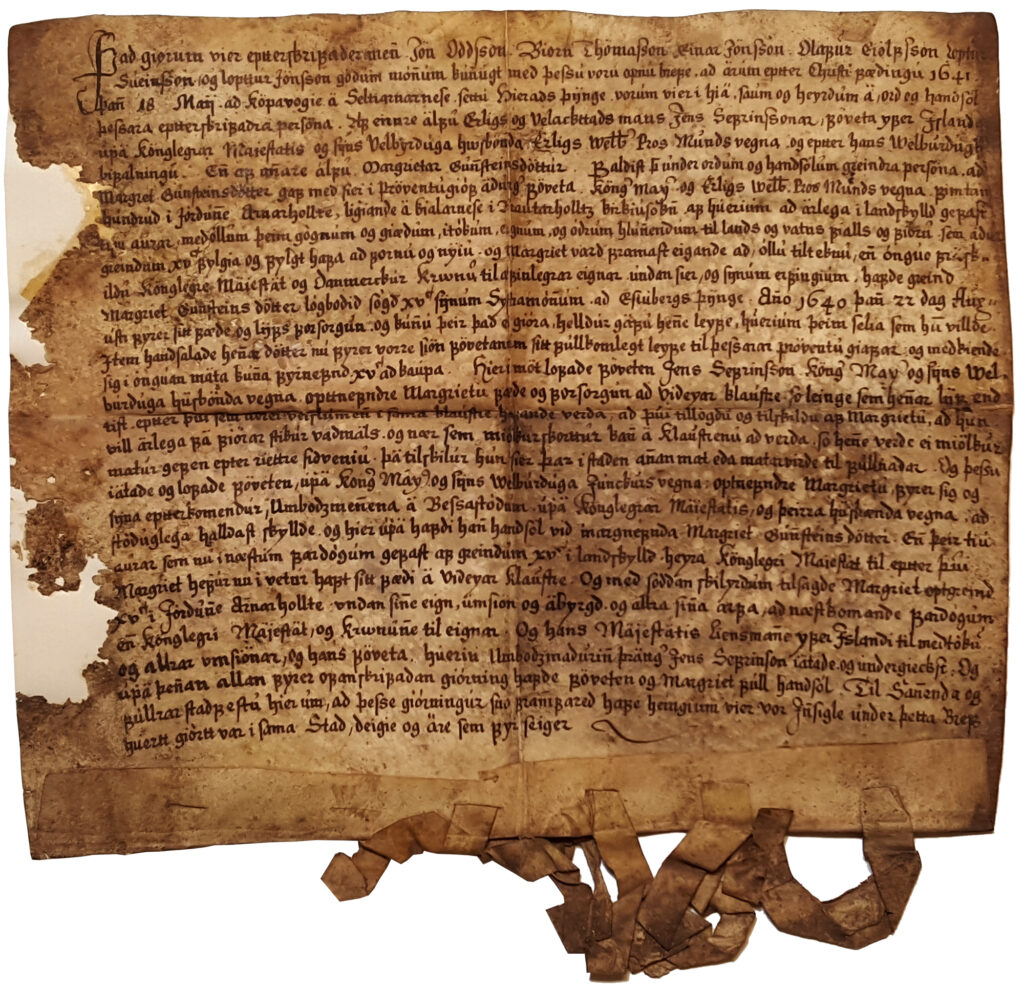 Þad giorum vier eptterskrifader menn Jon Oddsson Biorn Thomasson Einar Jonsson Olafur Eiolfsson Lopttur
Sueinsson, og lopttur Jonsson godum mönnum kunugt med þessu voru opnu brefe, ad ärum eptter Christi fædingu 1641
þan 18 Maij, ad Köpavogie ä Selttiarnarnese, settu hierads þijnge, vorum vier i hiä, säum og heyrdum ä, ord og handsöl
þessara eptterskrifadra persona. Af einnre älfu Erligs og Velacttads mans Jens Söfrinssonar, föveta yfer Island
upä Konglegrar Maiestatis og sijns Velbyrduga husbonda Erligs Welb. Pros Munds vegna, og eptter hans Welburdugh
bifalningu. En af annare älfu Margrietar Gunsteinsdöttur. Faldist so under ordum og handsölum greindra persona, ad
Margriet Gunsteinsdötter gaf med sier i Pröventugiöf ädurn föveta, Köng May og Erligs Welb. Pros Munds vegna, fimtan
hundrud i Jördunne Arnarhollte, ligiande ä Kialarnese i Brautarholltz kirkiusökn, af huerium ad ärlega i landskylld gefast
tiju aurar, med öllum þeim gögnum og giædum, itökum, eignum, og ödrum hlunnendum til lands og vatns fialls og fiöru sem ädur
greindum xv c fylgia og fylgt hafa ad fornu og nyiu, og Margriet vard framast eigande ad, öllu tiltektu, en önguo
Konglegre Mäjestät og Danmerckur Krwnu til æfinlegrar eignar, undan sier, og sijnum erfingium, hafde greind
Margriet Gunsteins dötter lögbodid sögd xv c sijnum Syskamönnum, ad Esiubergs þijnge, Año 1640 þan 22 dag Aug-
usti fyrer sitt fæde, og lijfs forsorgun, og kunnu þeir þad ei giöra, helldur gäfu henne leyfe, huerium þeim selia sem hun villde.
Item handsalade hennar dötter nu fyrer vorre siön fövetanum sitt fullkomlegt leyfe til þessarar pröventu giafar, og medkiende
sig i önguan mäta kunna fyrnefnd xv c ad kaupa. Hier i möt lofade föveten Jens Söfrinsson Köng May og sijns Wel-
burduga husbonda vegna, opttnefndre Margrietu fæde og forsorgun ad Videyar klaustre, so leinge sem hennar lijf end
tist, eptter þui sem
vill ärlega fä fiorar stikur vadmäls, og nær sem miölkurskorttur kann ä Klaustrenu ad verda, so henne verde ei miölkur
matur gefen epter riettre sidveniu, þä tilskilur hun sier þar i staden annan mat eda matarvirde til fullnadar. Og þessu
iätade og lofade föveten, upä Köng May og sijns Welburduga Junckurs vegna, opttnefndre Margrietu, fyrer sig og
sijna eptterkomendur, Umbodzmennena ä Bessastödum, upä Konglegrar Mäiestatis, og þeirra husbonda vegna, ad
stöduglega halldast skyllde, og hier upä hafdi hann handsöl vid margnefnda Margriet Gunsteins dötter. En þeir tiu
aurar sem nu i næstum fardögum gefast af greindum xv c i landskylld heyra Konglegri Maiestat til eptter þui
Margriet hefur nu i vetur haft sitt fædi ä Videyar klaustre. Og med soddan skilyrdum tilsagde Margriet optgreind
xv c i Jördunne Arnarhollte undan sinne eign, umsion og äbyrgd, og allra sinna arfa, ad næstkomande fardögum
en Konglegri Mäjestät, og Krwnunne til eignar. Og hans Mäjestätis Liensmanne yfer Islandi til medtöku
og allrar umsiönar, og hans föveta, hueriu Umbodzmadurin Jens Söfrinson iätade og undergieckst. Og
upä þennan allan fyrer ofanskrifadan giörning hafde föveten og Margriet full handsöl. Til Sannenda og
fullrar stadfestu hier um, ad þesse giörningur sao framfared hafe hengium vier vor Jnsigle under þetta Bref
huertt giörtt var i sama Stad, deigie og äre sem fyr seiger